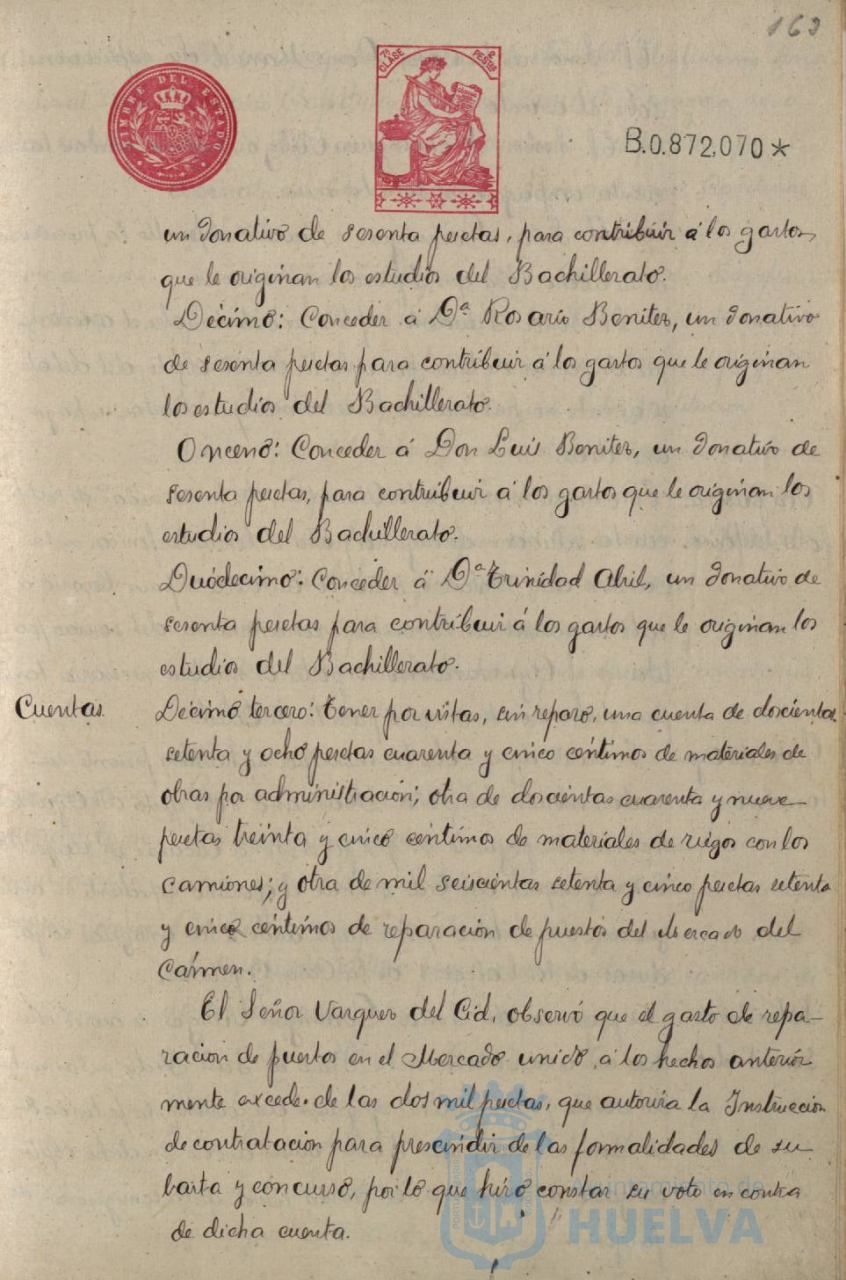 163
TIMBRE DEL ESTADO
7ª CLASE
PESETAS
B.0.872,070*
un donativo de sesenta pesetas, para contribuir á los gastos,
que le originan los estudios del Bachillerato.
Décimo: Conceder á Dª Rosario Benitez, un donativo
de sesenta pesetas para contribuir á los gastos que le originan
los estudios del Bachillerato.
Onceno: Conceder á Don Luis Benitez, un donativo de
sesenta pesetas, para contribuir á los gastos que le originan los
estudios del Bachillerato.
Duódecimo: Conceder á Dª Trinidad Abril, un donativo de
sesenta pesetas para contribuir á los gastos que le originan los
estudios del Bachillerato.
Cuentas.
Décimo tercero: Tener por vistas, sin reparo, una cuenta de doscientas
setenta y ocho pesetas cuarenta y cinco céntimos de materiales de
obras por administración; otra de doscientas cuarenta y nueve
pesetas treinta y cinco céntimos de materiales de riegos con los
camiones; y otra de mil seiscientas setenta y cinco pesetas setenta
y cinco céntimos de reparación de puestos del Mercado del
Carmen.
El Señor Vazquez del Cid, observó que el gasto de repa-
racion de puestos en el Mercado unido á los hechos anterior
mente excede de las dos mil pesetas, que autoriza la Instruccion
de contratación para prescindir de las formalidades de su
basta y concurso, por lo que hizo constar su voto en contra
de dicha cuenta.
Ayuntamiento de
HUELVA